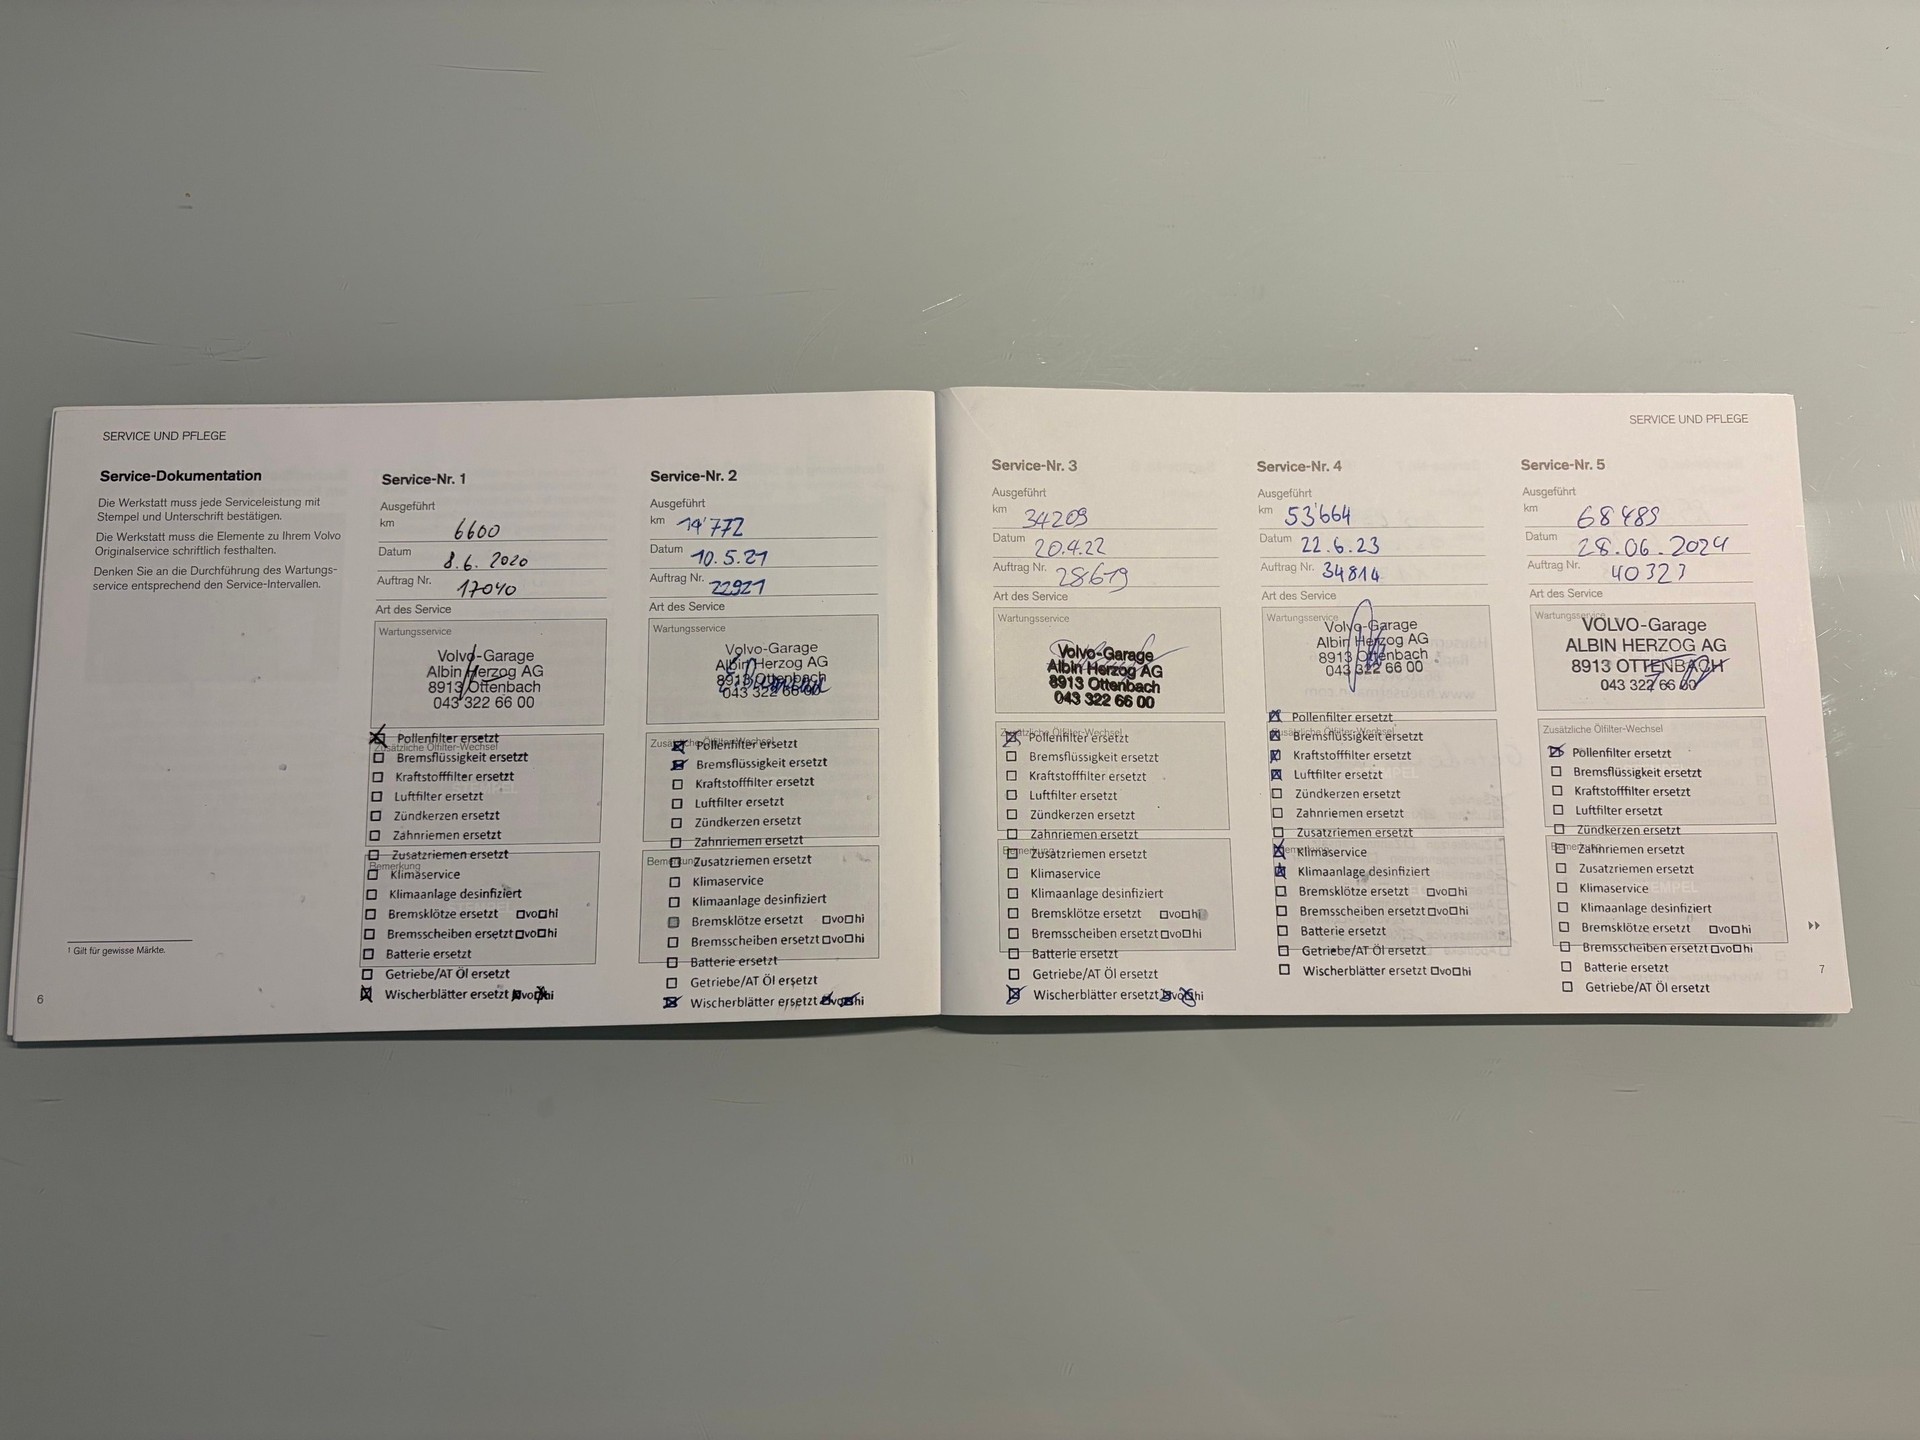 SERVICE UND PFLEGE
Service-Dokumentation
Die Werkstatt muss jede Serviceleistung mit
Stempel und Unterschrift bestätigen.
Die Werkstatt muss die Elemente zu Ihrem Volvo
Originalservice schriftlich festhalten.
Denken Sie an die Durchführung des Wartungs-
service entsprechend den Service-Intervallen.
1 Gilt für gewisse Märkte.
6
Service-Nr. 1
Ausgeführt
km 6600
Datum 8.6. 2020
Auftrag Nr. 17040
Art des Service
Wartungsservice
Volvo-Garage
Albin Herzog AG
8913 Ottenbach
043 322 66 00
Pollenfilter ersetzt
Zusätzliche Ölfilter-Wechsel
Bremsflüssigkeit ersetzt
Kraftstofffilter ersetzt
Luftfilter ersetzt
Zündkerzen ersetzt
Zahnriemen ersetzt
Zusatzriemen ersetzt
Bemerkung
Klimaservice
Klimaanlage desinfiziert
Bremsklötze ersetzt vo hi
Bremsscheiben ersetzt vo hi
Batterie ersetzt
Getriebe/AT Öl ersetzt
Wischerblätter ersetzt vo hi
Service-Nr. 2
Ausgeführt
km 14'772
Datum 10.5.21
Auftrag Nr. 22921
Art des Service
Wartungsservice
Volvo-Garage
Albin Herzog AG
8913 Ottenbach
043 322 66 00
Zusätzliche Ölfilter-Wechsel
Pollenfilter ersetzt
Bremsflüssigkeit ersetzt
Kraftstofffilter ersetzt
Luftfilter ersetzt
Zündkerzen ersetzt
Zahnriemen ersetzt
Bemerkung
Zusatzriemen ersetzt
Klimaservice
Klimaanlage desinfiziert
Bremsklötze ersetzt vo hi
Bremsscheiben ersetzt vo hi
Batterie ersetzt
Getriebe/AT Öl ersetzt
Wischerblätter ersetzt vo hi
SERVICE UND PFLEGE
Service-Nr. 3
Ausgeführt
km 34209
Datum 20.4.22
Auftrag Nr. 28619
Art des Service
Wartungsservice
Volvo-Garage
Albin Herzog AG
8913 Ottenbach
043 322 66 00
Zusätzliche Ölfilter-Wechsel
Pollenfilter ersetzt
Bremsflüssigkeit ersetzt
Kraftstofffilter ersetzt
Luftfilter ersetzt
Zündkerzen ersetzt
Zahnriemen ersetzt
Bemerkung
Zusatzriemen ersetzt
Klimaservice
Klimaanlage desinfiziert
Bremsklötze ersetzt vo hi
Bremsscheiben ersetzt vo hi
Batterie ersetzt
Getriebe/AT Öl ersetzt
Wischerblätter ersetzt vo hi
Service-Nr. 4
Ausgeführt
km 53'664
Datum 22.6.23
Auftrag Nr. 34814
Art des Service
Wartungsservice
Volvo-Garage
Albin Herzog AG
8913 Ottenbach
043 322 66 00
Pollenfilter ersetzt
Zusätzliche Ölfilter-Wechsel
Bremsflüssigkeit ersetzt
Kraftstofffilter ersetzt
Luftfilter ersetzt
Zündkerzen ersetzt
Zahnriemen ersetzt
Zusatzriemen ersetzt
Bemerkung
Klimaservice
Klimaanlage desinfiziert
Bremsklötze ersetzt vo hi
Bremsscheiben ersetzt vo hi
Batterie ersetzt
Getriebe/AT Öl ersetzt
Wischerblätter ersetzt vo hi
Service-Nr. 5
Ausgeführt
km 68489
Datum 28.06.2024
Auftrag Nr. 40323
Art des Service
Wartungsservice
VOLVO-Garage
ALBIN HERZOG AG
8913 OTTENBACH
043 322 66 00
Zusätzliche Ölfilter-Wechsel
Pollenfilter ersetzt
Bremsflüssigkeit ersetzt
Kraftstofffilter ersetzt
Luftfilter ersetzt
Zündkerzen ersetzt
Bemerkung
Zahnriemen ersetzt
Zusatzriemen ersetzt
Klimaservice
Klimaanlage desinfiziert
Bremsklötze ersetzt vo hi
Bremsscheiben ersetzt vo hi
Batterie ersetzt
Getriebe/AT Öl ersetzt
7